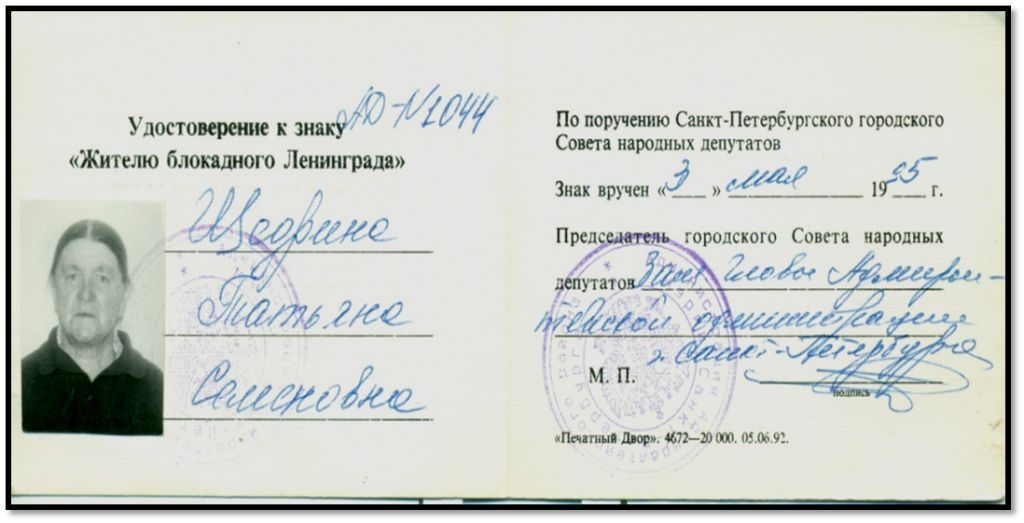 АД-N1044
Удостоверение к знаку
«Жителю блокадного Ленинграда»
Щедрина
Татьяна
Семеновна
По поручению Санкт-Петербургского городского
Совета народных депутатов
Знак вручен «3» мая 1995 г.
Председатель городского Совета народных
депутатов Зам. Главы Адмирал-
тейской администрации
г. Санкт-Петербурга
М. П.
подпись
«Печатный Двор». 4672—20 000. 05.06.92.